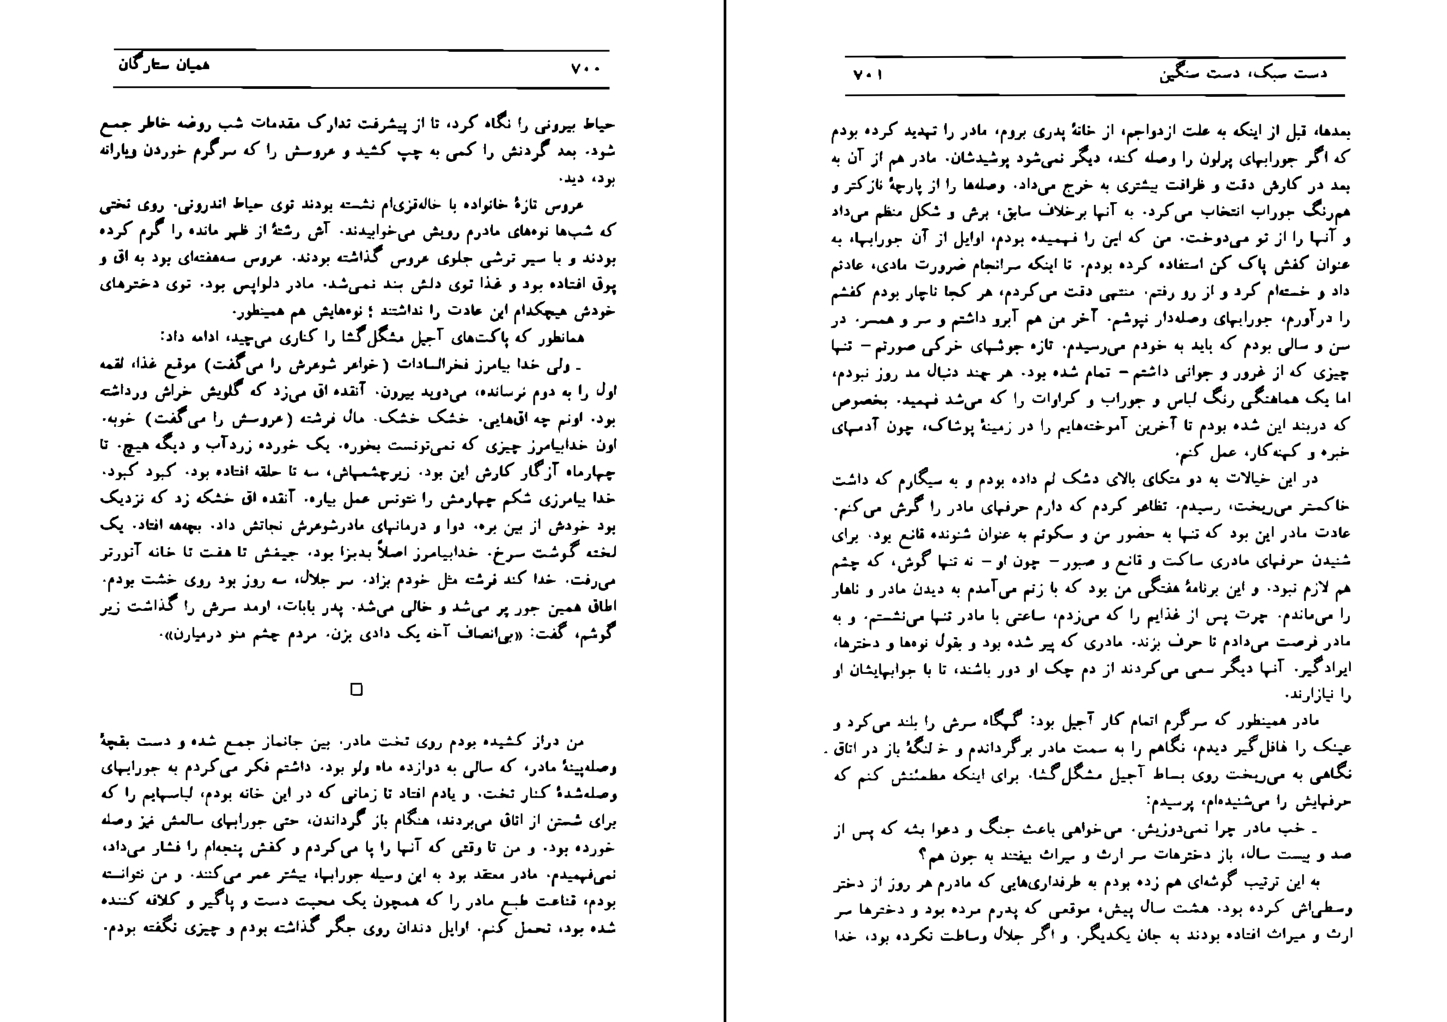 همیان ستارگان
۷۰۰
حیاط بیرونی را نگاه کرد، تا از پیشرفت تدارک مقدمات شب روضه خاطر جمع
شود. بعد گردنش را کمی به چپ کشید و عروسش را که سرگرم خوردن ویارانه
بود، دید.
عروس تازهٔ خانواده با خاله‌قزی‌ام نشسته بودند توی حیاط اندرونی. روی تختی
که شب‌ها نوه‌های مادرم رویش می‌خوابیدند. آش رشتهٔ از ظهر مانده را گرم کرده
بودند و با سیر ترشی جلوی عروس گذاشته بودند. عروس سه‌هفته‌ای بود به اق و
پوق افتاده بود و غذا توی دلش بند نمی‌شد. مادر دلواپس بود. توی دخترهای
خودش هیچکدام این عادت را نداشتند ؛ نوه‌هایش هم همینطور.
همانطور که پاکت‌های آجیل مشگل‌گشا را کناری می‌چید، ادامه داد:
ـ ولی خدا بیامرز فخرالسادات (خواهر شوهرش را می‌گفت) موقع غذا، لقمه
اول را به دوم نرسانده، می‌دوید بیرون. آنقده اق می‌زد که گلویش خراش ورداشته
بود. اونم چه اق‌هایی. خشک خشک. مال فرشته (عروسش را می‌گفت) خوبه.
اون خدابیامرز چیزی که نمی‌تونست بخوره. یک خورده زردآب و دیگه هیچ. تا
چهارماه آزگار کارش این بود. زیرچشمهاش، سه تا حلقه افتاده بود. کبود کبود.
خدا بیامرزی شکم چهارمش را نتونس عمل بیاره. آنقده اق خشکه زد که نزدیک
بود خودش از بین بره. دوا و درمانهای مادرشوهرش نجاتش داد. بچه‌هه افتاد. یک
لخته گوشت سرخ. خدابیامرز اصلاً بدبزا بود. جیغش تا هفت تا خانه آنورتر
می‌رفت. خدا کند فرشته مثل خودم بزاد. سر جلال، سه روز بود روی خشت بودم.
اطاق همین جور پر می‌شد و خالی می‌شد. پدر بابات، اومد سرش را گذاشت زیر
گوشم، گفت: «بی‌انصاف آخه یک دادی بزن. مردم چشم منو درمیارن».
من دراز کشیده بودم روی تخت مادر. بین جانماز جمع شده و دست بقچهٔ
وصله‌پینهٔ مادر، که سالی به دوازده ماه ولو بود. داشتم فکر می‌کردم به جورابهای
وصله‌شدهٔ کنار تخت. و یادم افتاد تا زمانی که در این خانه بودم، لباسهایم را که
برای شستن از اتاق می‌بردند، هنگام باز گرداندن، حتی جورابهای سالمش نیز وصله
خورده بود. و من تا وقتی که آنها را پا می‌کردم و کفش پنجه‌ام را فشار می‌داد،
نمی‌فهمیدم. مادر معتقد بود به این وسیله جورابها، بیشتر عمر می‌کنند. و من نتوانسته
بودم، قناعت طبع مادر را که همچون یک محبت دست و پاگیر و کلافه کننده
شده بود، تحمل کنم. اوایل دندان روی جگر گذاشته بودم و چیزی نگفته بودم.
دست سبک، دست سنگین
۷۰۱
بعدها، قبل از اینکه به علت ازدواجم، از خانهٔ پدری بروم، مادر را تهدید کرده بودم
که اگر جورابهای پرلون را وصله کند، دیگر نمی‌شود پوشیدشان. مادر هم از آن به
بعد در کارش دقت و ظرافت بیشتری به خرج می‌داد. وصله‌ها را از پارچهٔ نازکتر و
هم‌رنگ جوراب انتخاب می‌کرد. به آنها برخلاف سابق، برش و شکل منظم می‌داد
و آنها را از تو می‌دوخت. من که این را فهمیده بودم، اوایل از آن جورابها، به
عنوان کفش پاک کن استفاده کرده بودم. تا اینکه سرانجام ضرورت مادی، عادتم
داد و خسته‌ام کرد و از رو رفتم. منتهی دقت می‌کردم، هر کجا ناچار بودم کفشم
را درآورم، جورابهای وصله‌دار نپوشم. آخر من هم آبرو داشتم و سر و همسر. در
سن و سالی بودم که باید به خودم می‌رسیدم. تازه جوشهای خرکی صورتم – تنها
چیزی که از غرور و جوانی داشتم – تمام شده بود. هر چند دنبال مد روز نبودم،
اما یک هماهنگی رنگ لباس و جوراب و کراوات را که می‌شد فهمید. بخصوص
که دربند این شده بودم تا آخرین آموخته‌هایم را در زمینهٔ پوشاک، چون آدمهای
خبره و کهنه‌کار، عمل کنم.
در این خیالات به دو متکای بالای دشک لم داده بودم و به سیگارم که داشت
خاکستر می‌ریخت، رسیدم. تظاهر کردم که دارم حرفهای مادر را گوش می‌کنم.
عادت مادر این بود که تنها به حضور من و سکوتم به عنوان شنونده قانع بود. برای
شنیدن حرفهای مادری ساکت و قانع و صبور – چون او – نه تنها گوش، که چشم
هم لازم نبود. و این برنامهٔ هفتگی من بود که با زنم می‌آمدم به دیدن مادر و ناهار
را می‌ماندم. چرت پس از غذایم را که می‌زدم، ساعتی با مادر تنها می‌نشستم. و به
مادر فرصت می‌دادم تا حرف بزند. مادری که پیر شده بود و بقول نوه‌ها و دخترها،
ایرادگیر. آنها دیگر سعی می‌کردند از دم چک او دور باشند، تا با جوابهایشان او
را نیازارند.
مادر همینطور که سرگرم اتمام کار آجیل بود: گهگاه سرش را بلند می‌کرد و
عینک را غافل‌گیر دیدم، نگاهم را به سمت مادر برگرداندم و از لنگهٔ باز در اتاق
نگاهی به می‌ریخت روی بساط آجیل مشگل‌گشا. برای اینکه مطمئنش کنم که
حرفهایش را می‌شنیده‌ام، پرسیدم:
ـ خب مادر چرا نمی‌دوزیش. می‌خواهی باعث جنگ و دعوا بشه که پس از
صد و بیست سال، باز دخترهات سر ارث و میراث بیفتند به جون هم؟
به این ترتیب گوشه‌ای هم زده بودم به طرفداری‌هایی که مادرم هر روز از دختر
وسطی‌اش کرده بود. هشت سال پیش، موقعی که پدرم مرده بود و دخترها سر
ارث و میراث افتاده بودند به جان یکدیگر. و اگر جلال وساطت نکرده بود، خدا